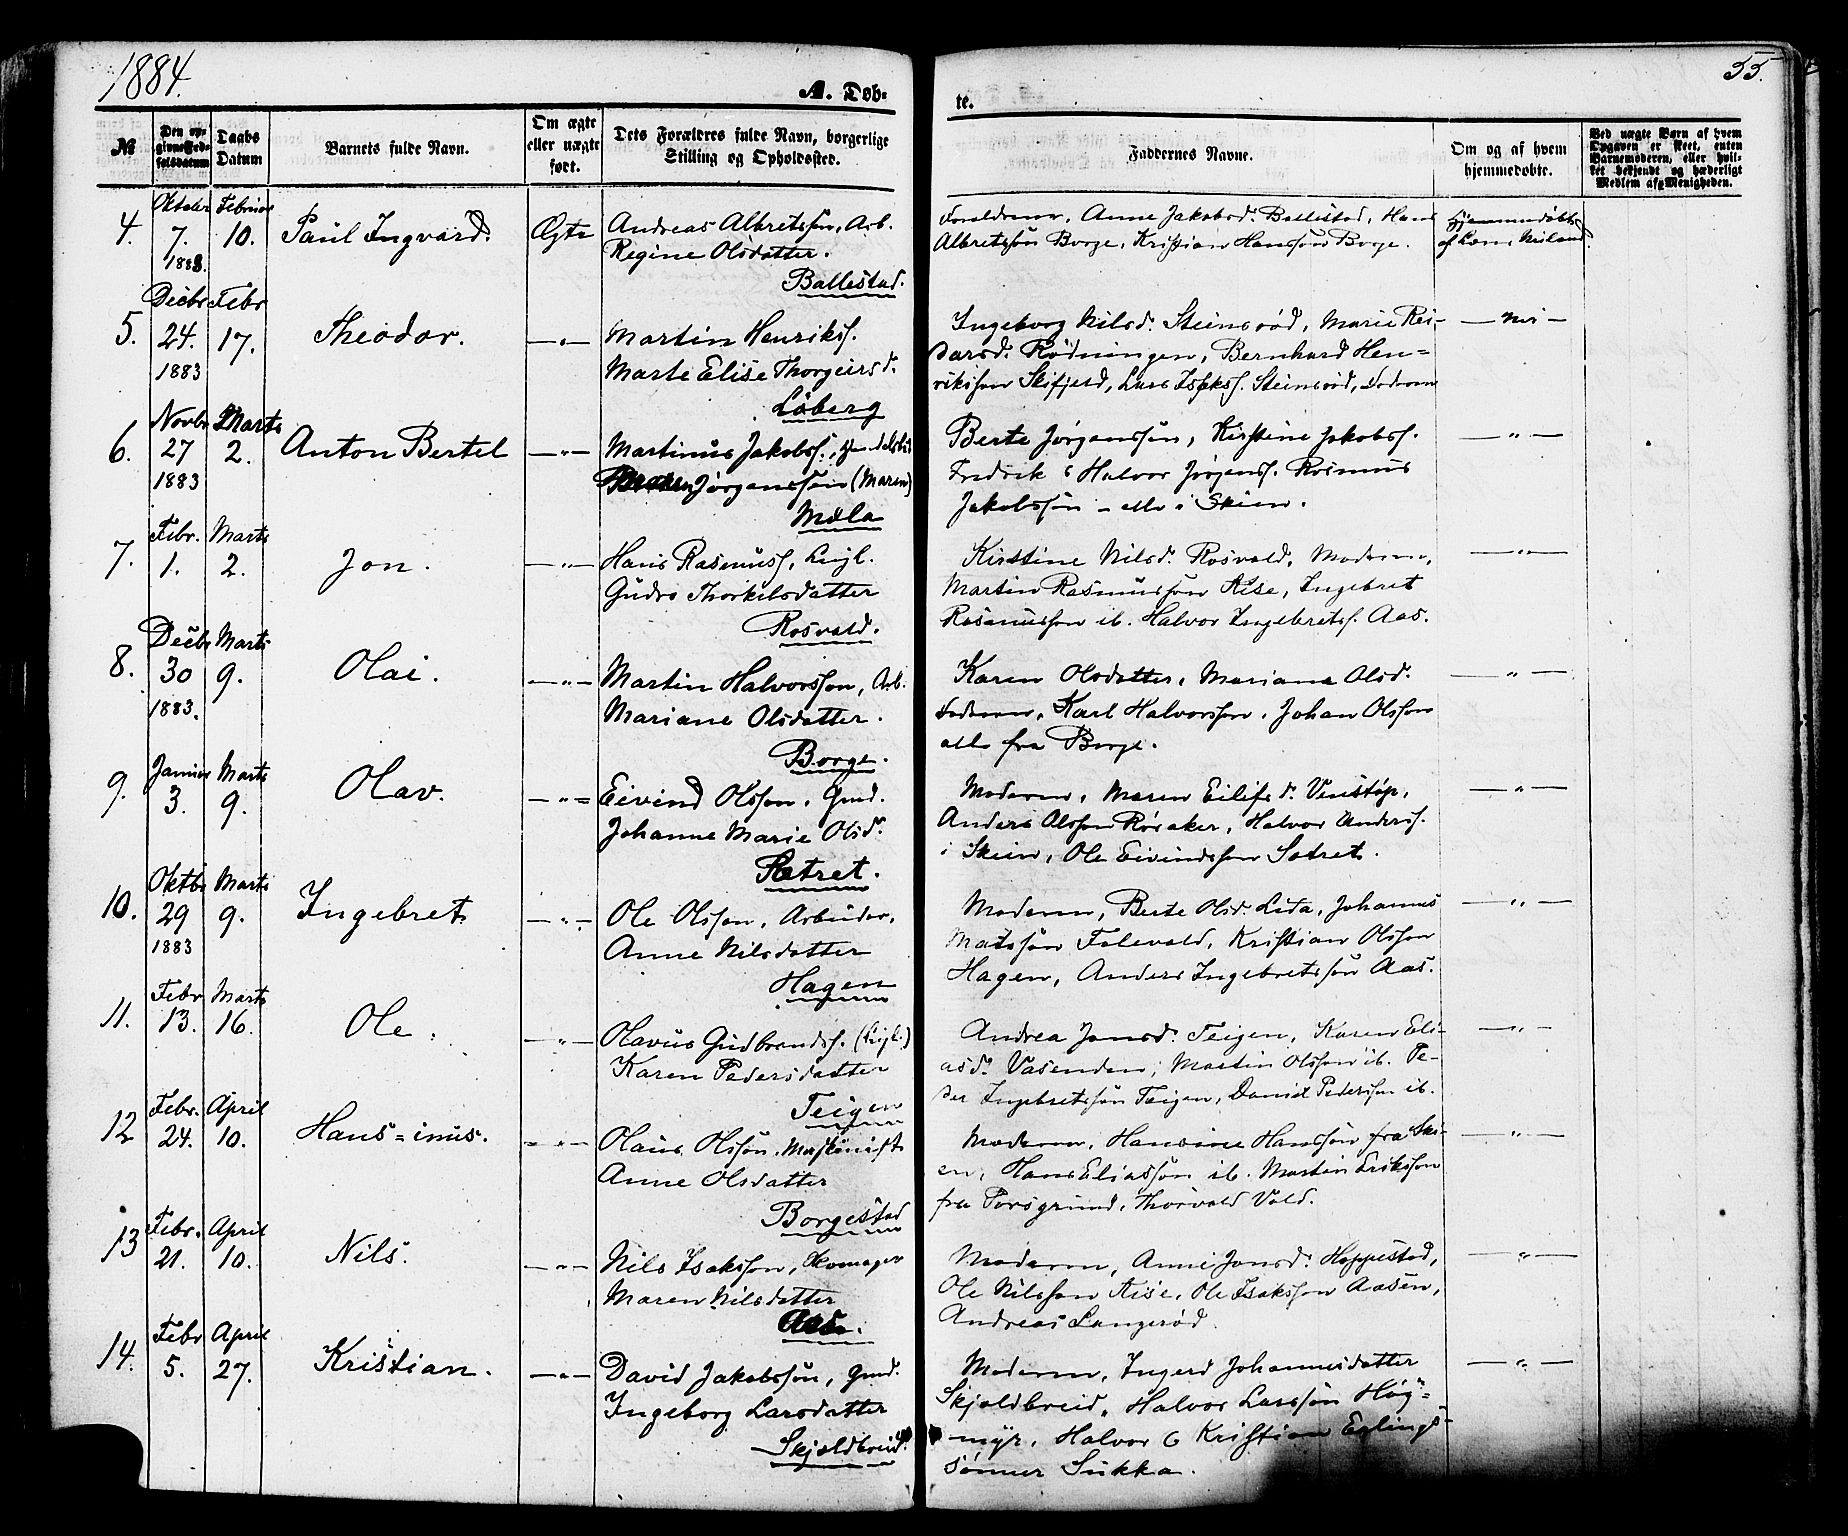 1884.
A. Døb-
te.
55.
№
Den op-
givne Fød-
selsdatum
Daabs
Datum
Barnets fulde Navn.
Om ægte
eller uægte
født.
Dets Forældres fulde Navn, borgerlige
Stilling og Opholdssted.
Faddernes Navne.
Om og af hvem
hjemmedøbte.
Ved uægte Børn af hvem
Opgaven er skeet, enten
Barnemoderen, eller hvil-
ket bekjendt og hæderligt
Medlem af Menigheden.
4. Oktober 7. 1883. Februar 10. Paul Ingvard. Ægte
Andreas Albretssøn, Arb.
Regine Olsdatter.
Ballestad.
Forældrene, Anne Jakobsd. Ballestad, Hans
Albretssøn Borge, Kristian Hanssøn Borge.
Hjemmedøbt
af Læns
5. Decbr 24. 1883 Febr 17. Theodor. — „ —
Martin Henriks.
Marte Elise Thorgeirsd.
Løberg
Ingeborg Nilsd. Steinsrød, Marie Rei-
darsd. Rødningen, Bernhard Hen-
rikssøn Skifjeld, Lars Isaks. Steinsrød, Faderen
— Nei —
6. Novbr 27 1883 Marts 2. Anton Bertel — „ —
Martinus Jakobss.,
Jørgenssøn (Maren)
Mæla
Berte Jørgenssøn, Kirstine Jakobss.
Fredrik & Halvor Jørgenss. Rasmus
Jakobssøn – alle i Skien.
— „ —
7. Febr. 1. Marts 2. Jon. — „ —
Hans Rasmuss. Leigl.
Gudro Thorkilsdatter
Rosvald.
Kirstine Nilsd. Rosvald, Moderen,
Martin Rasmussøn Aise, Ingebret
Rasmussøn ib. Halvor Ingebrets. Aas.
— „ —
8. Decbr 30 1883. Marts 9. Olai. — „ —
Martin Halvorssøn, Arb.
Mariane Olsdatter.
Borge.
Karen Olsdatter, Mariane Olsd.
Faderen, Karl Halvorssøn, Johan Olssøn
alle fra Borge.
— „ —
9. Januar 3. Marts 9. Olav. — „ —
Eivind Olssøn, Grd.
Johanne Marie Olsd.
Sætret.
Moderen, Maren Eilifsd. Venstøp,
Anders Olssøn Røraker, Halvor Anders.
i Skien, Ole Eivindssøn Sætret.
— „ —
10. Oktbr 29 1883 Marts 9. Ingebret — „ —
Ole Olssøn, Arbeider,
Anne Nilsdatter
Hagen
Moderen, Berte Olsd. Lida, Johannes
Matssøn Folevald, Kristian Olssøn
Hagen, Anders Ingebretssøn Aas.
— „ —
11. Febr 13. Marts 16. Ole. — „ —
Olavus Gudbrands. (Leigl.)
Karen Pedersdatter
Teigen
Andrea Jonsd. Teigen, Karen Eli-
asd. Vasenden; Martin Olssøn ib. Pe-
der Ingebretssøn Teigen, Daniel Pederssøn ib.
— „ —
12 Febr. 24. April 10. Hans=inus. — „ —
Olaus Olssøn, Maskinist
Anne Olsdatter
Borgestad
Moderen, Hansine Hanssøn fra Ski-
en, Hans Eliassøn ib. Martin Erikssøn
fra Porsgrund, Thorvald Vold.
— „ —
13 Febr. 21. April 10. Nils. — „ —
Nils Isakssøn, Skomager
Maren Nilsdatter
Moderen, Anne Jonsd. Hoppestad,
Ole Nilssøn Aise, Ole Isakssøn Aasen,
Andreas Langerød.
— „ —
14. Febr 5. April 27. Kristian. — „ —
David Jakobssøn, Grd.
Ingeborg Larsdatter
Skjoldbreid.
Moderen, Ingerd Johannesdatter
Skjoldbreid, Halvor Larssøn Høg-
myr, Halvor & Kristian Erlings-
sønner Sukka.
— „ —